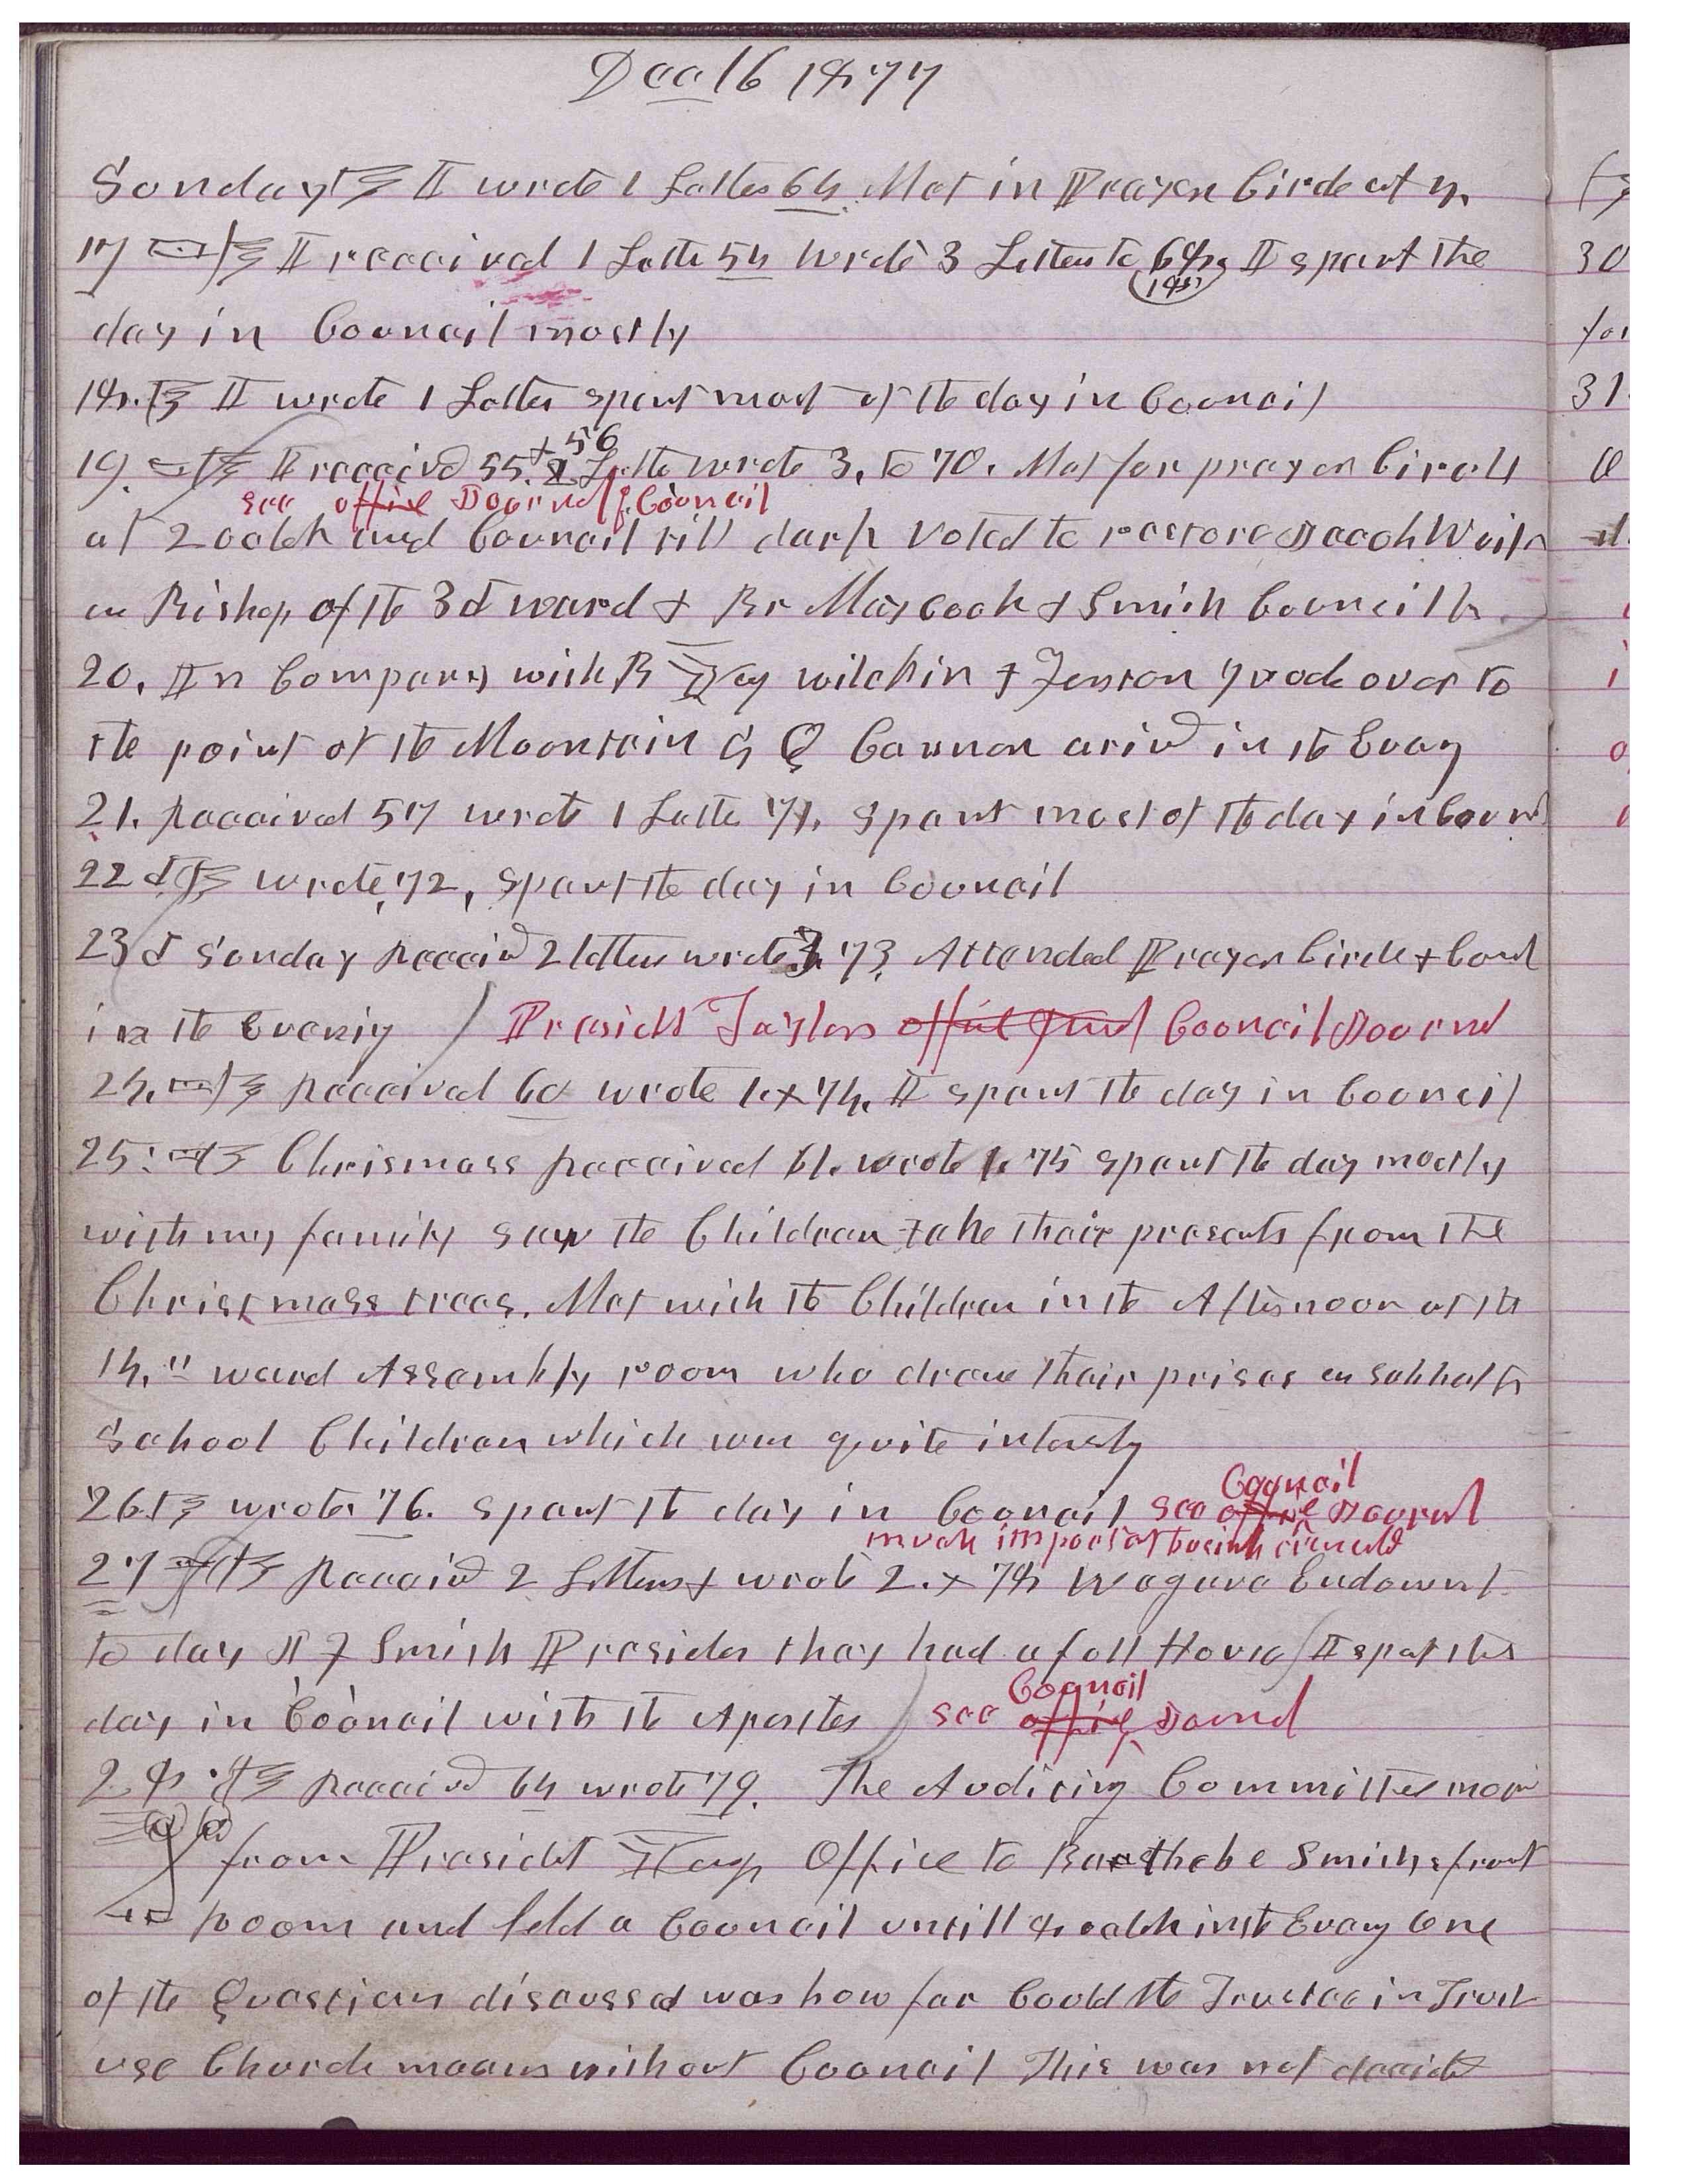 Dec 16 1877
Sunday I wrote 1 Letter 64. Met in Prayer Circle at 7
17 I received 1 Letter 54 wrote 3 Letters to 68, I spent the
(18)
day in Council mostly
18. I wrote 1 Letter spent most of the day in Council
19. I receivd 55. + 56 2 Letters wrote 3, to 70. Met for prayer Circle
see office Journal f Council
at 2 oclok and Council till dark Voted to restore Jacob Weiler
as Bishop of the 3d ward & Br Maycock & Smith Councillors
20. In Company with B Young wilckin & Jenson I rode over to
the point of the Mountain G Q Cannon arivd in the Evening
21. Received 57 wrote 1 Letter 71. spent most of the day in Council
22d wrote, 72, spent the day in Council
23d Sunday Receivd 2 letters wrote 3 73. Attended Prayer Circle & Council
in the Evening / Presidet Taylors office Jurnl Council Journal
24. Received 60 wrote 1.+ 74. I spent the day in Council
25: Chrismass Received 61. wrote 1. 75 spent the day mostly
with my family saw the Children take their presents from the
Christmass trees. Met with the Children in the Afternoon at the
14." ward Assembly room who drew their prises as Sabbath
School Children which was quite interestg
26. wrote 76. spent the day in Council see office Council Journal
much important busins
27 Receivd 2 Letters & wrote 2.+ 78 We gave Endowmt
to day J F Smith Presides they had a full House / I spent the
day in Council with the Apostles see office Council Journal
28 Receivd 64 wrote 79. The Auditing Committee
from Presidet Young Office to Barthebe Smiths front
Room and held a Council untill 8 oclok in the Evening One
of the Questions discussed was how far Could the Trustee in Trust
use Church means without Council This was not decided